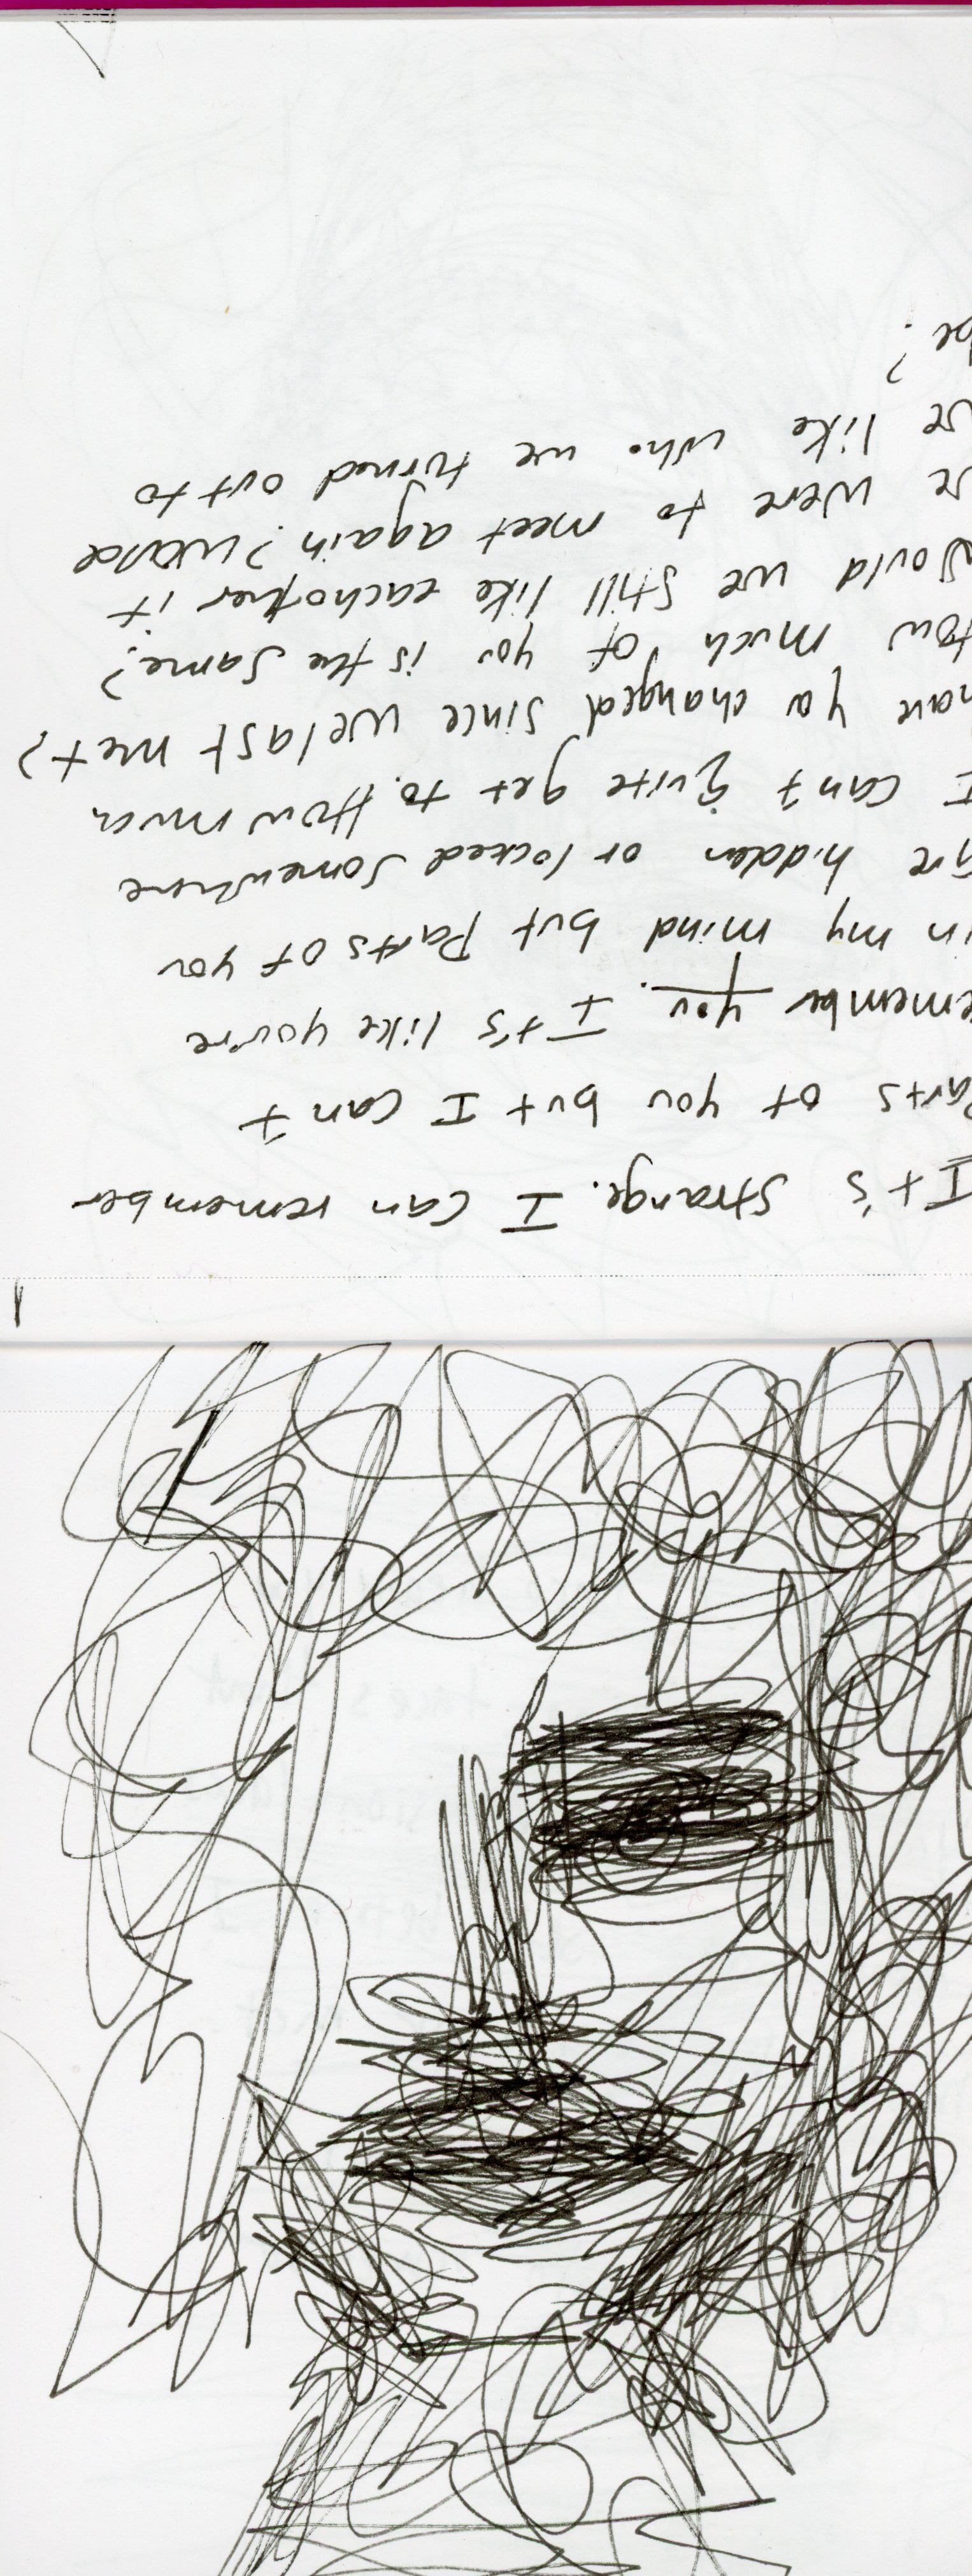 It's strange. I can remember
Parts of you but I can't
remember you. It's like you're
in my mind but Parts of you
are hidden or locked somewhere
I can't quite get to. How much
have you changed since we last met?
How much of you is the same?
would we still like eachother if
we were to meet again? would
we like who we turned out to
be?